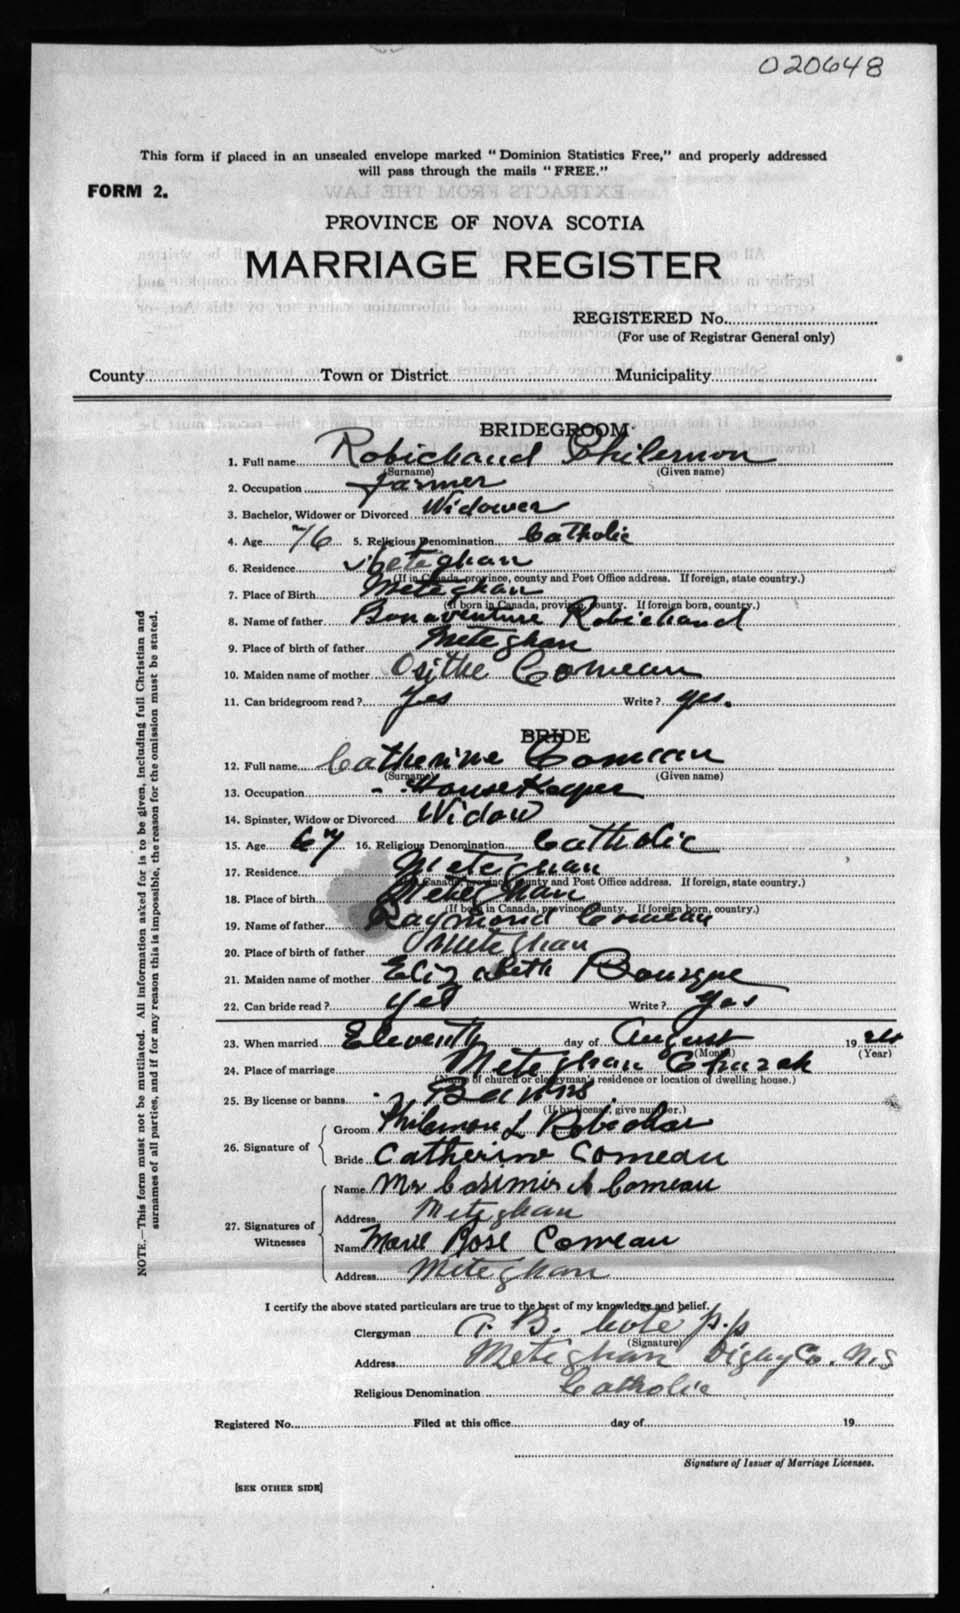 020648
This form if placed in an unsealed envelope marked "Dominion Statistics Free," and properly addressed
will pass through the mails "FREE."
FORM 2.
PROVINCE OF NOVA SCOTIA
MARRIAGE REGISTER
REGISTERED No.
(For use of Registrar General only)
County Town or District Municipality
BRIDEGROOM
1. Full name Robichaud Philemon
(Surname) (Given name)
2. Occupation farmer
3. Bachelor, Widower or Divorced Widower
4. Age 76 5. Religious Denomination Catholic
6. Residence Meteghan
(If in Canada, province, county and Post Office address. If foreign, state country.)
7. Place of Birth Meteghan
(If born in Canada, province, county. If foreign born, country.)
8. Name of father Bonaventure Robichaud
9. Place of birth of father Meteghan
10. Maiden name of mother Osithe Comeau
11. Can bridegroom read? Yes Write? yes.
BRIDE
12. Full name Catherine Comeau
(Surname) (Given name)
13. Occupation House Keeper
14. Spinster, Widow or Divorced Widow
15. Age 67 16. Religious Denomination Catholic
17. Residence Meteghan
(If in Canada, province, county and Post Office address. If foreign, state country.)
18. Place of birth Meteghan
(If born in Canada, province, county. If foreign born, country.)
19. Name of father Raymond Comeau
20. Place of birth of father Meteghan
21. Maiden name of mother Elizabeth Bourque
22. Can bride read? yes Write? yes
23. When married Eleventh day of August 1924
(Month) (Year)
24. Place of marriage Meteghan
(Name of church or clergyman's residence or location of dwelling house.)
25. By license or banns Banns
(If by license, give number.)
26. Signature of
Groom Philemon L Robichau
Bride Catherine Comeau
27. Signatures of Witnesses
Name Mr Casimir A Comeau
Address Meteghan
Name Marie Rose Comeau
Address Meteghan
I certify the above stated particulars are true to the best of my knowledge and belief.
Clergyman A. B. Coté p.p
(Signature)
Address Meteghan Digby Co. N.S
Religious Denomination Catholic
Registered No. Filed at this office day of 19
Signature of Issuer of Marriage Licenses.
[SEE OTHER SIDE]
NOTE.—This form must not be mutilated. All information asked for is to be given, including full Christian and
surnames of all parties, and if for any reason this is impossible, the reason for the omission must be stated.